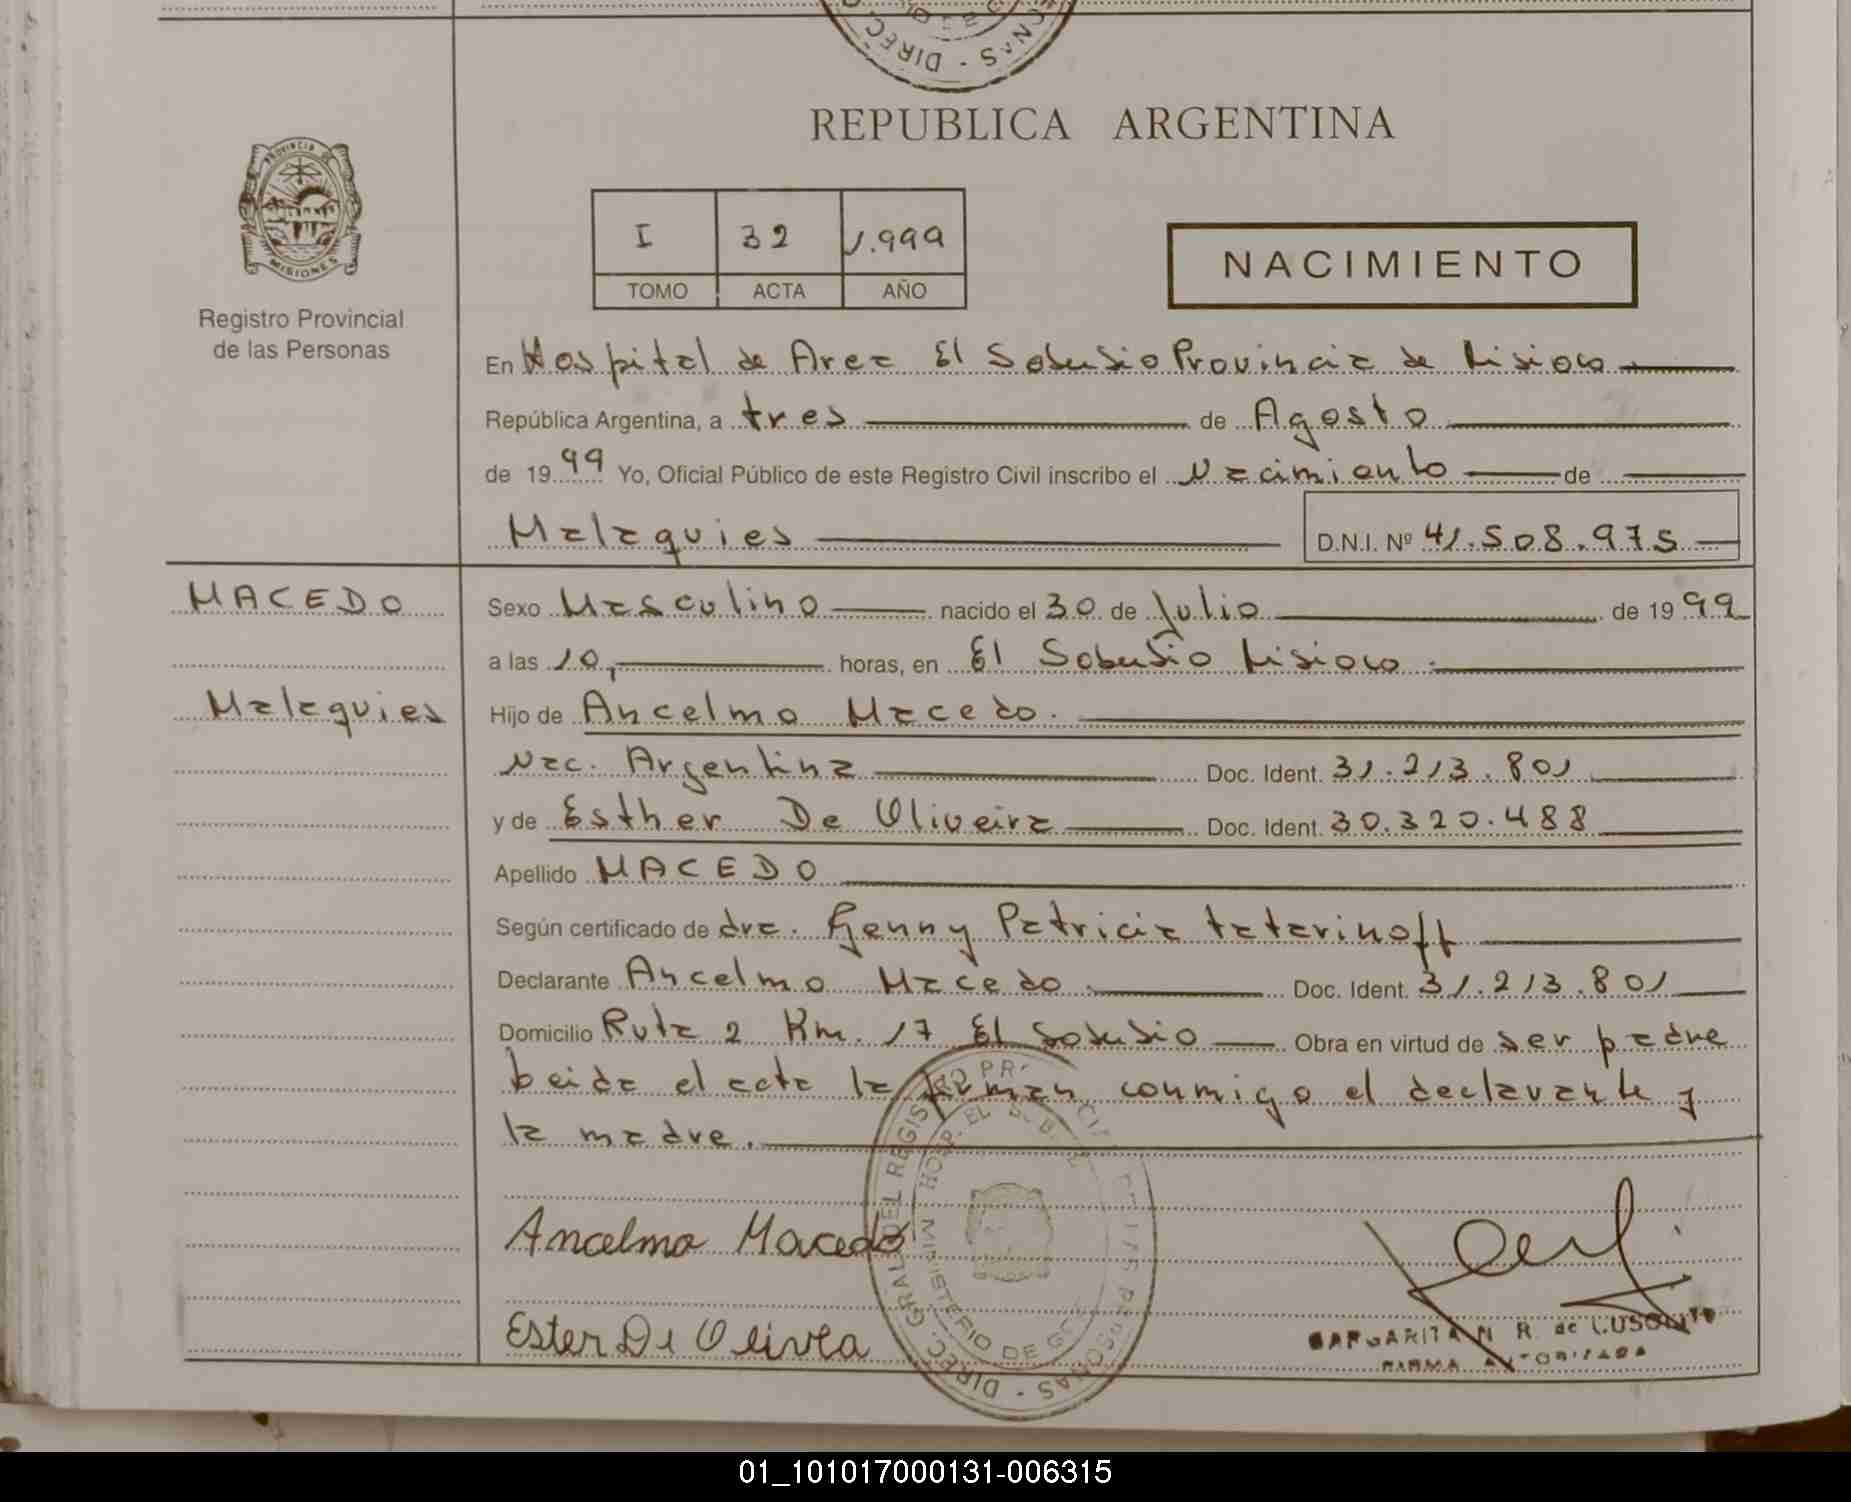 DIREC
NAS
REPUBLICA ARGENTINA
PROVINCIA DE
MISIONES
Registro Provincial
de las Personas
I 32 1.999
TOMO ACTA AÑO
NACIMIENTO
En Hospital de Area El Soberbio Provincia de Misiones
República Argentina, a tres de Agosto
de 1999 Yo, Oficial Público de este Registro Civil inscribo el Nacimiento de
Malaquies D.N.I. Nº 41.508.975
MACEDO
Malaquies
Sexo Masculino nacido el 30 de Julio de 1999
a las 10, horas, en El Soberbio Misiones.
Hijo de Ancelmo Macedo.
Nac. Argentina Doc. Ident. 31.213.801
y de Esther De Oliveira Doc. Ident. 30.320.488
Apellido MACEDO
Según certificado de dra. Genny Patricia Tatarinoff
Declarante Ancelmo Macedo. Doc. Ident. 31.213.801
Domicilio Ruta 2 Km. 17 El Soberbio Obra en virtud de ser padre
Leida el acta la firman conmigo el declarante y
la madre.
Ancelmo Macedo
Ester De Olivea
DIREC. GRAL. DEL REGISTRO PR CIAL DE LAS PERSONAS
HOSP. EL SOB
MINISTERIO DE GO
MARGARITA N R. de LUSO
FIRMA AUTORIZADA
01_101017000131-006315